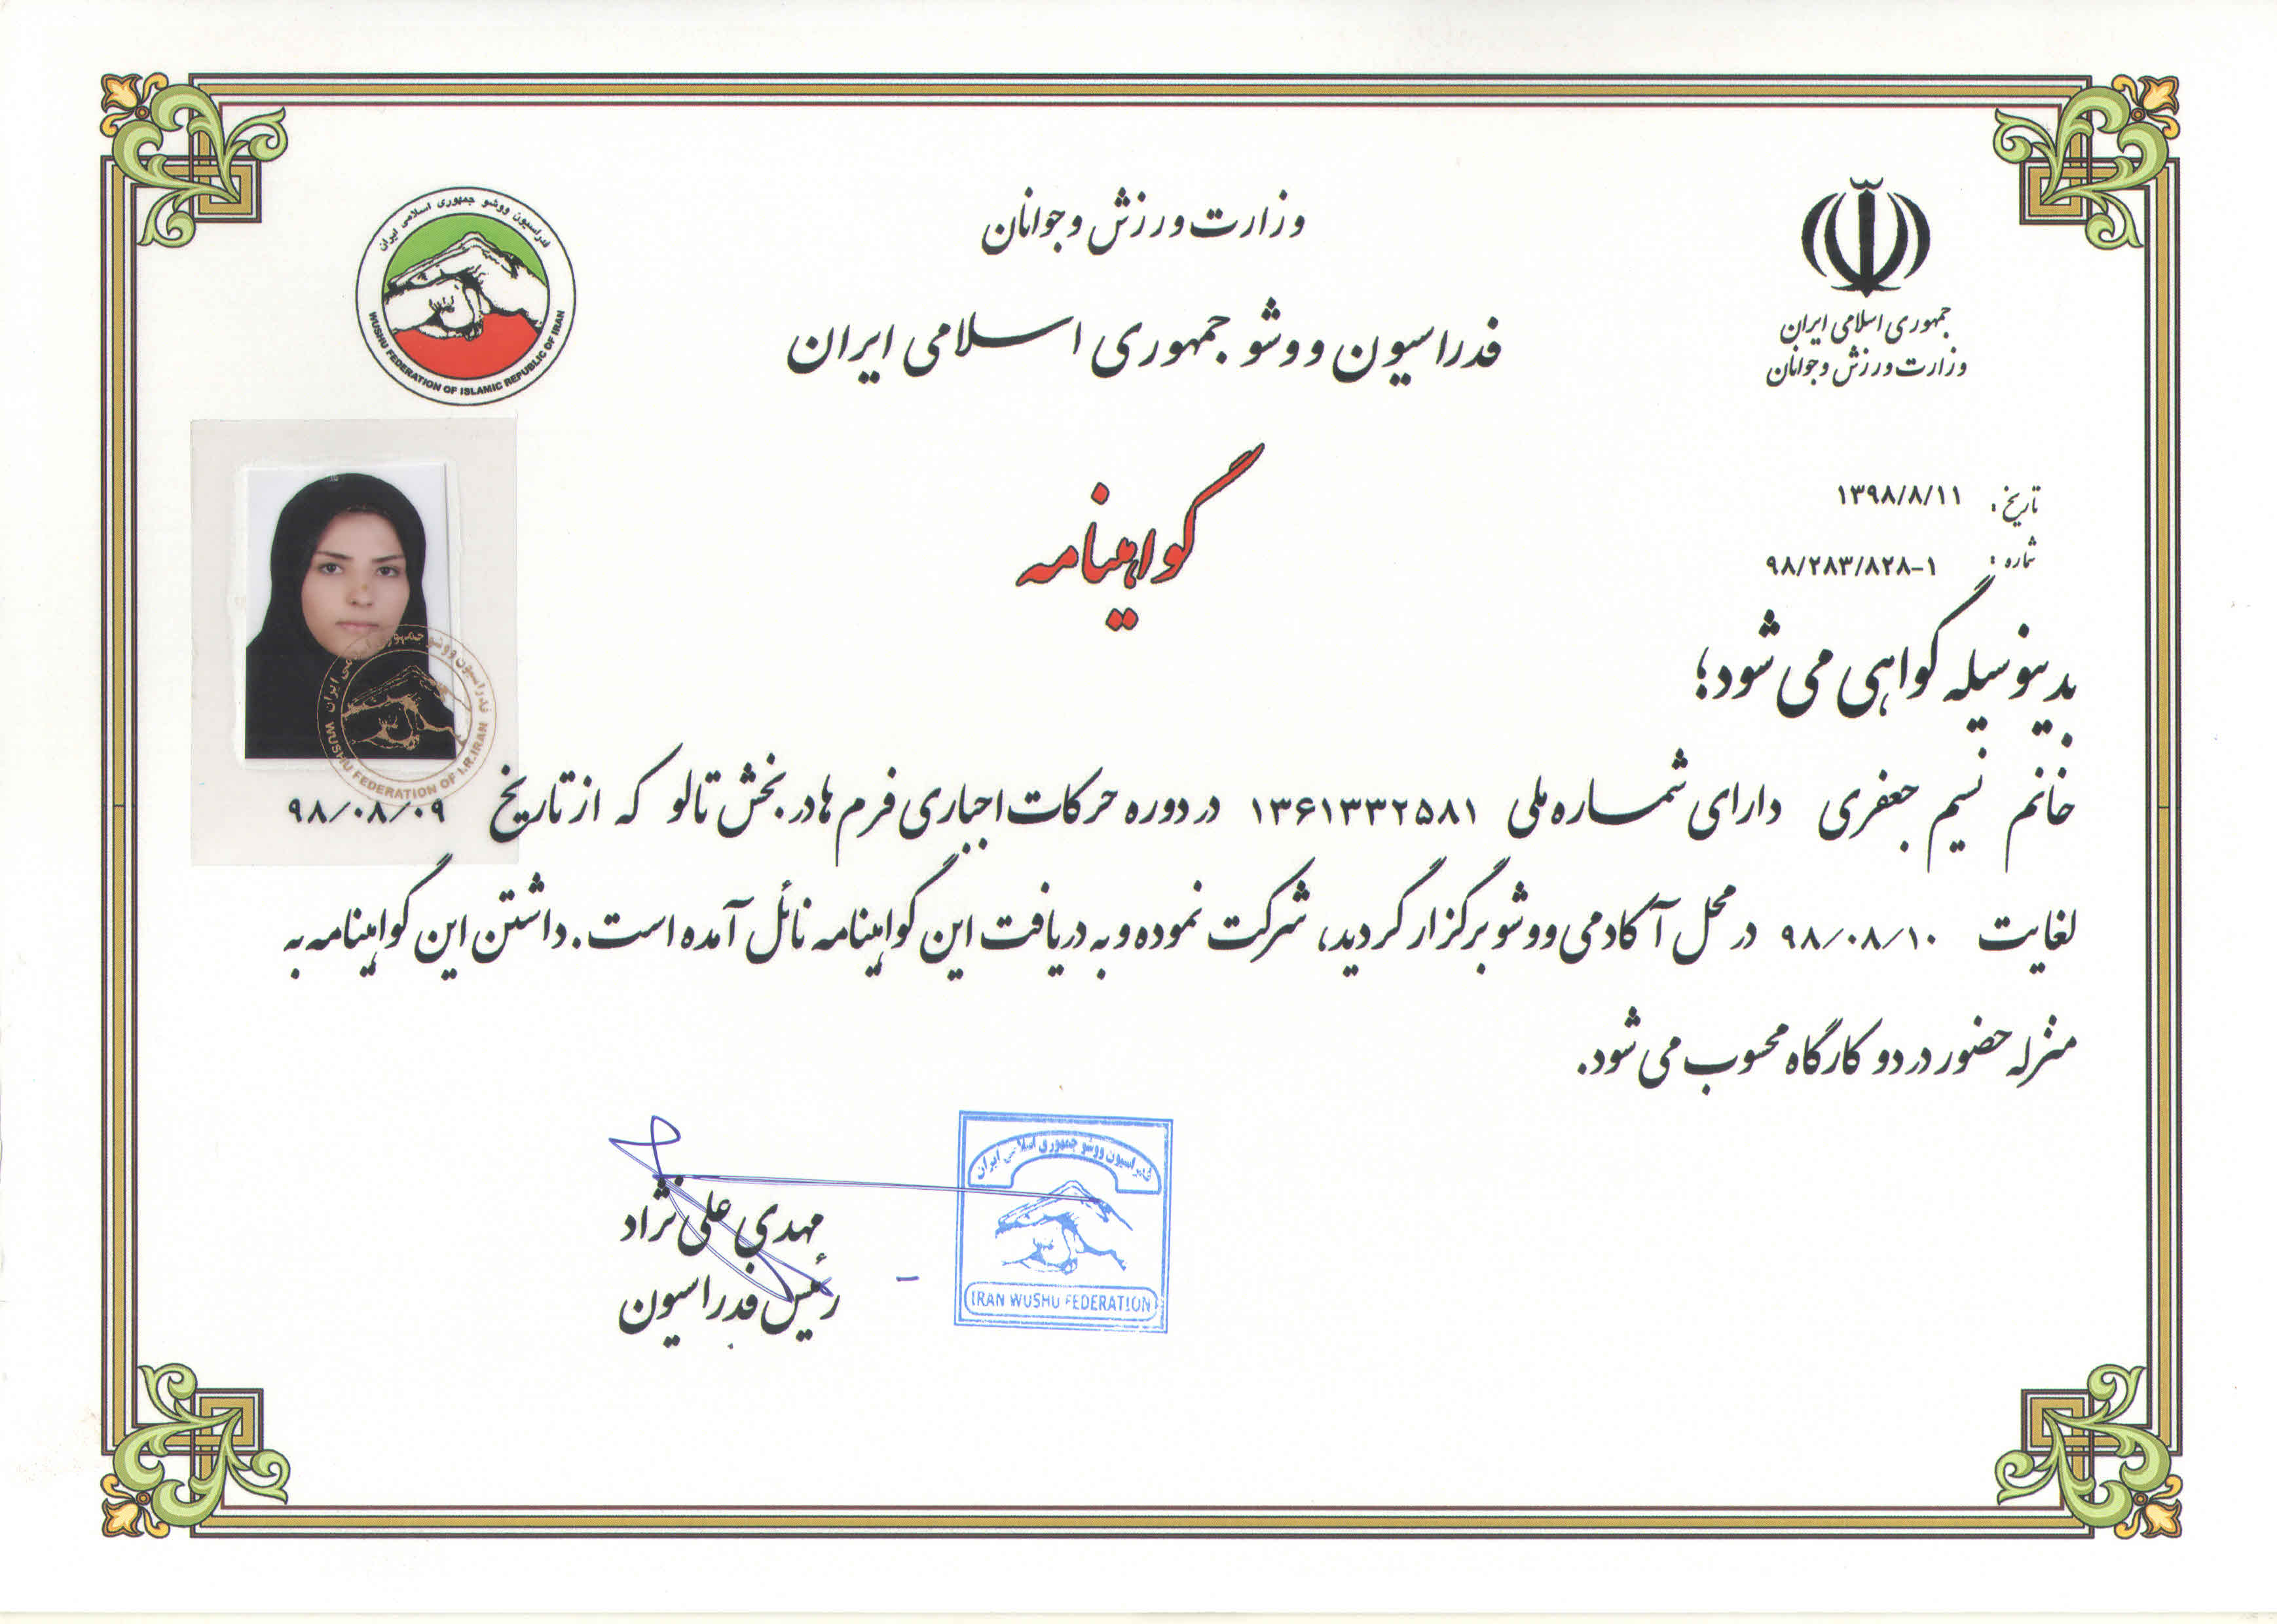 وزارت ورزش و جوانان
فدراسیون ووشو جمهوری اسلامی ایران
جمهوری اسلامی ایران
وزارت ورزش و جوانان
فدراسیون ووشو جمهوری اسلامی ایران
WUSHU FEDERATION OF ISLAMIC REPUBLIC OF IRAN
گواهینامه
تاریخ: ۱۳۹۸/۸/۱۱
شماره: ۹۸/۲۸۳/۸۲۸-۱
بدینوسیله گواهی می شود؛
خانم نسیم جعفری دارای شماره ملی ۱۳۶۱۳۳۲۵۸۱ در دوره حرکات اجباری فرم ها در بخش تالو که از تاریخ ۹۸/۰۸/۰۹
لغایت ۹۸/۰۸/۱۰ در محل آکادمی ووشو برگزار گردید، شرکت نموده و به دریافت این گواهینامه نائل آمده است. داشتن این گواهینامه به
منزله حضور در دو کارگاه محسوب می شود.
فدراسیون ووشو جمهوری اسلامی ایران
WUSHU FEDERATION OF I.R.IRAN
فدراسیون ووشو جمهوری اسلامی ایران
IRAN WUSHU FEDERATION
مهدی علی نژاد
رئیس فدراسیون